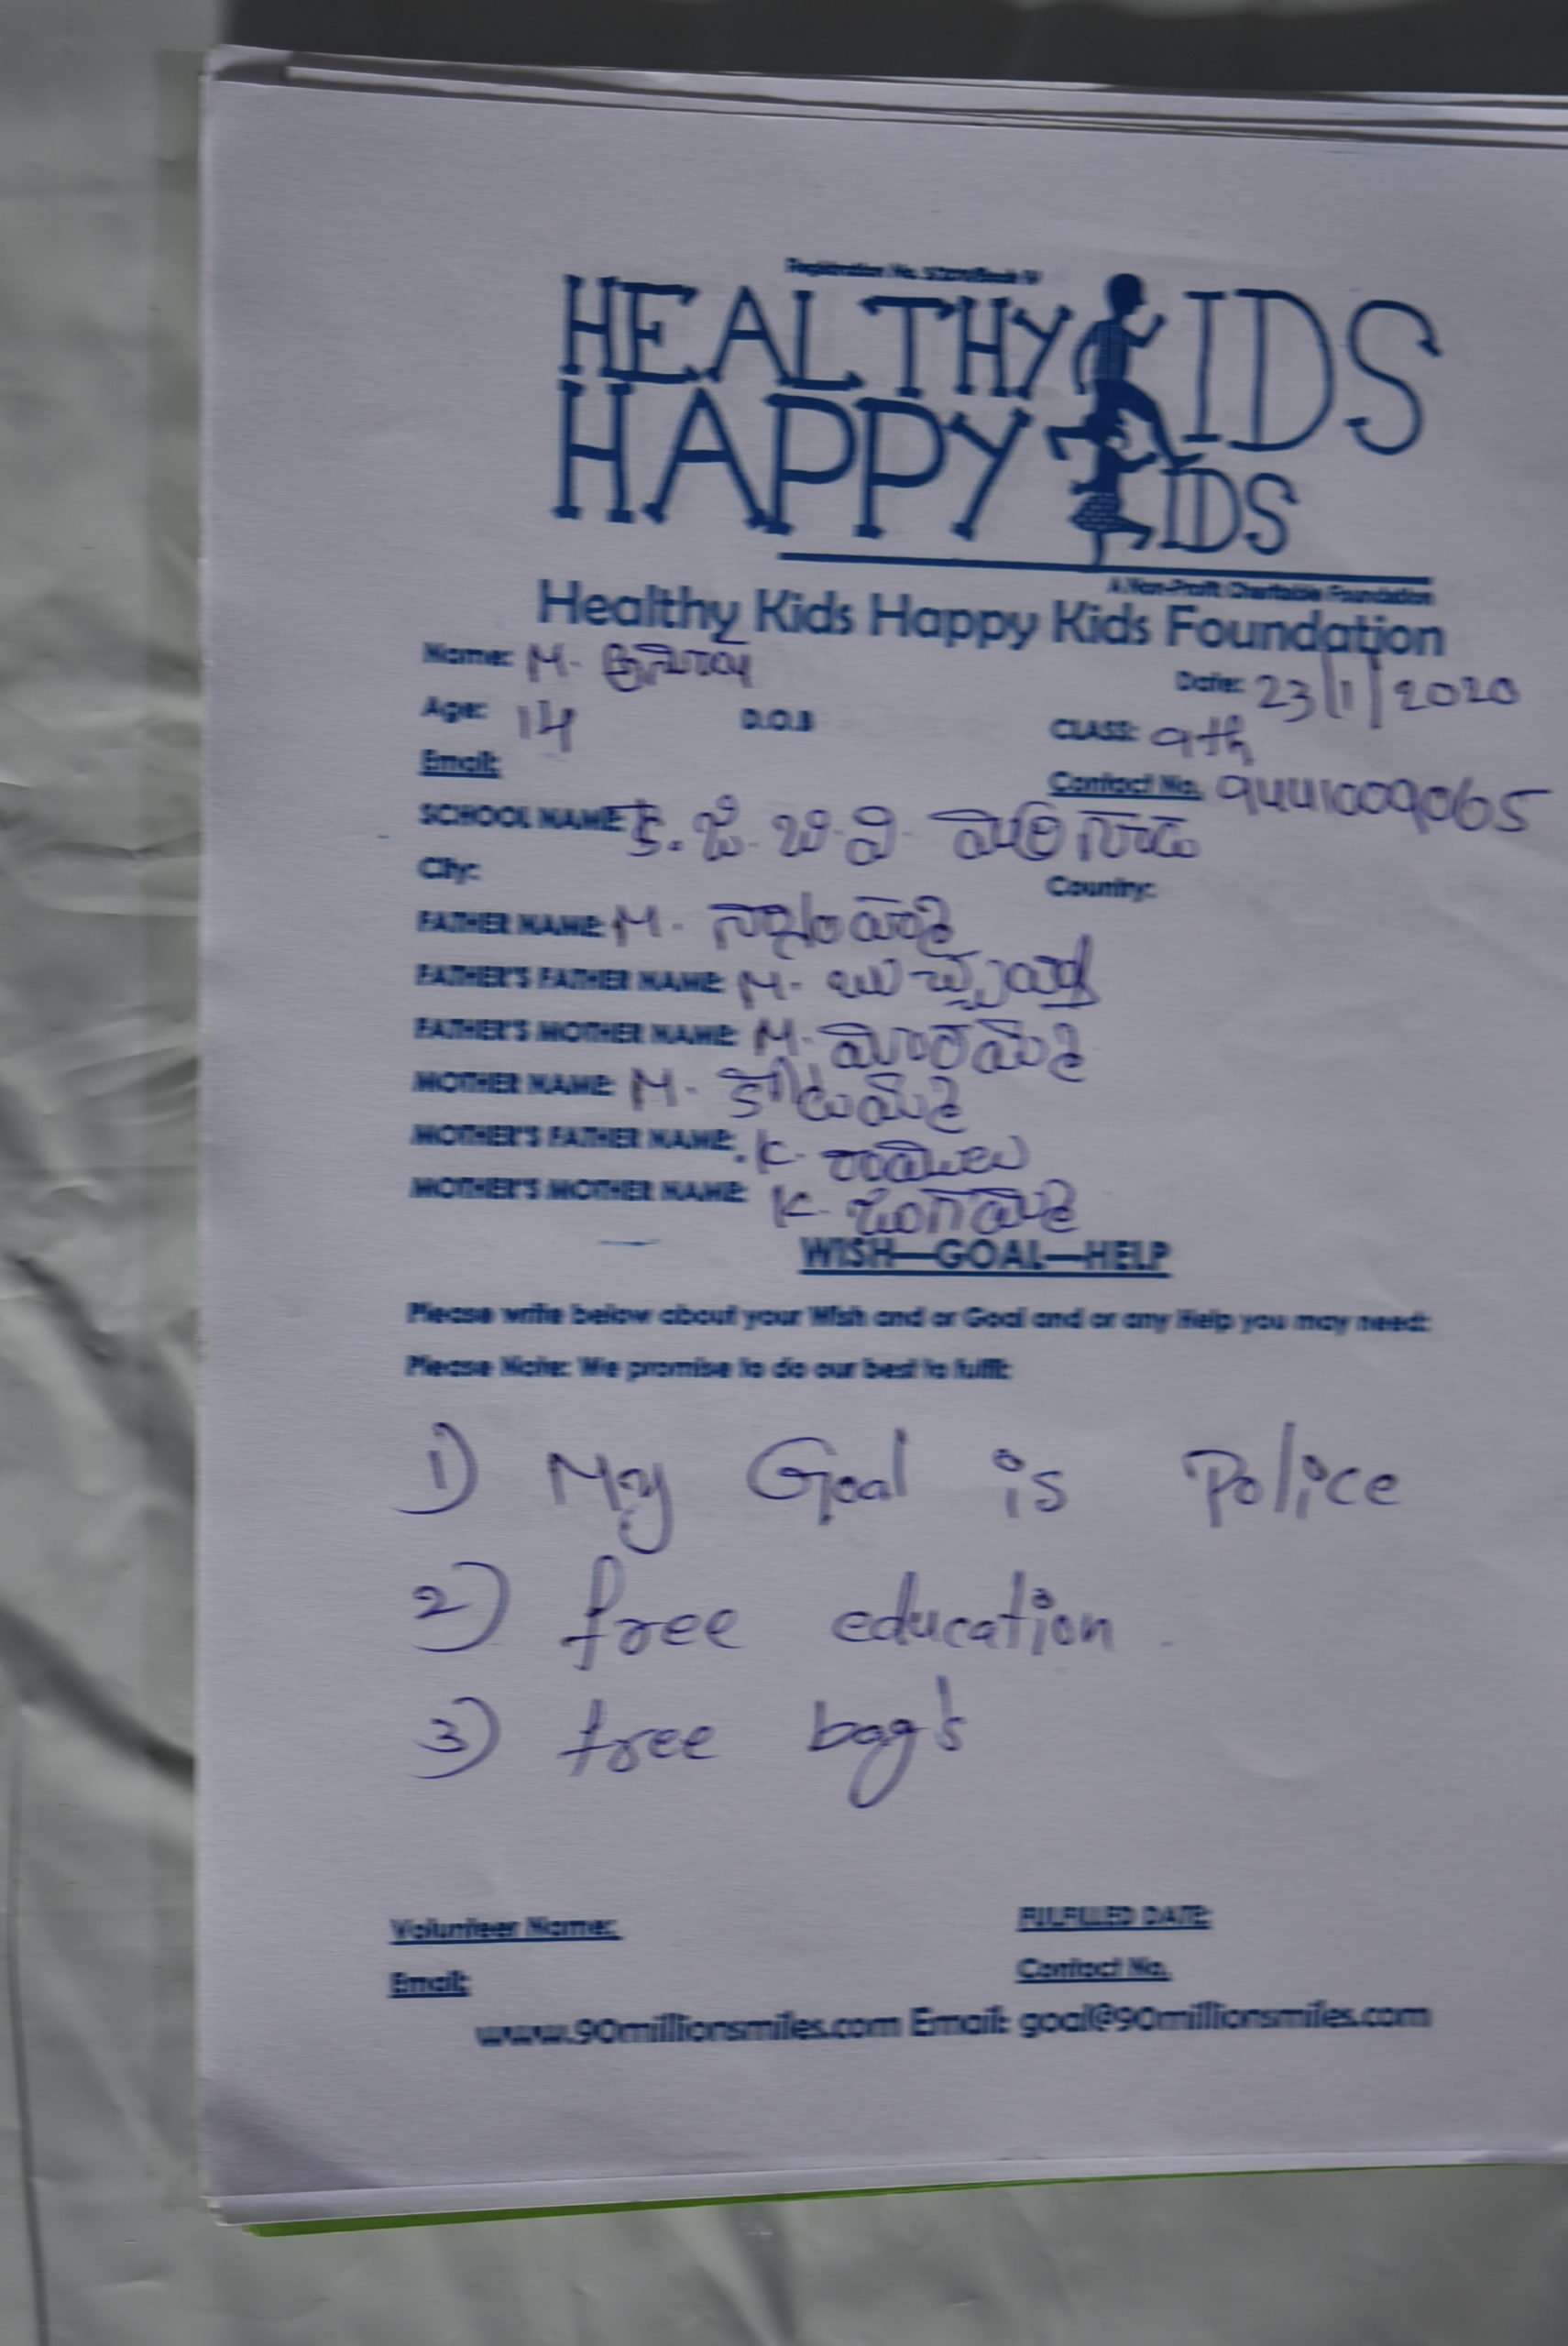 Registration No.
HEALTHY KIDS
HAPPY KIDS
A Non-Profit Charitable Foundation
Healthy Kids Happy Kids Foundation
Name: M.
Date: 23/1/2020
Age: 14 D.O.B CLASS: 9th
Email: Contact No. 9441009065
SCHOOL NAME: కె. జి. బి. వి. మర్రిగూడ
City: Country:
FATHER NAME: M.
FATHER'S FATHER NAME: M. బుచ్చయ్య
FATHER'S MOTHER NAME: M. మారమ్మ
MOTHER NAME: M.
MOTHER'S FATHER NAME: K. రాములు
MOTHER'S MOTHER NAME: K. జంగమ్మ
WISH—GOAL—HELP
Please write below about your Wish and or Goal and or any Help you may need:
Please Note: We promise to do our best to fulfil:
1) My Goal is Police
2) free education.
3) free bag's
Volunteer Name: FULFILLED DATE:
Email: Contact No.
www.90millionsmiles.com Email: goal@90millionsmiles.com